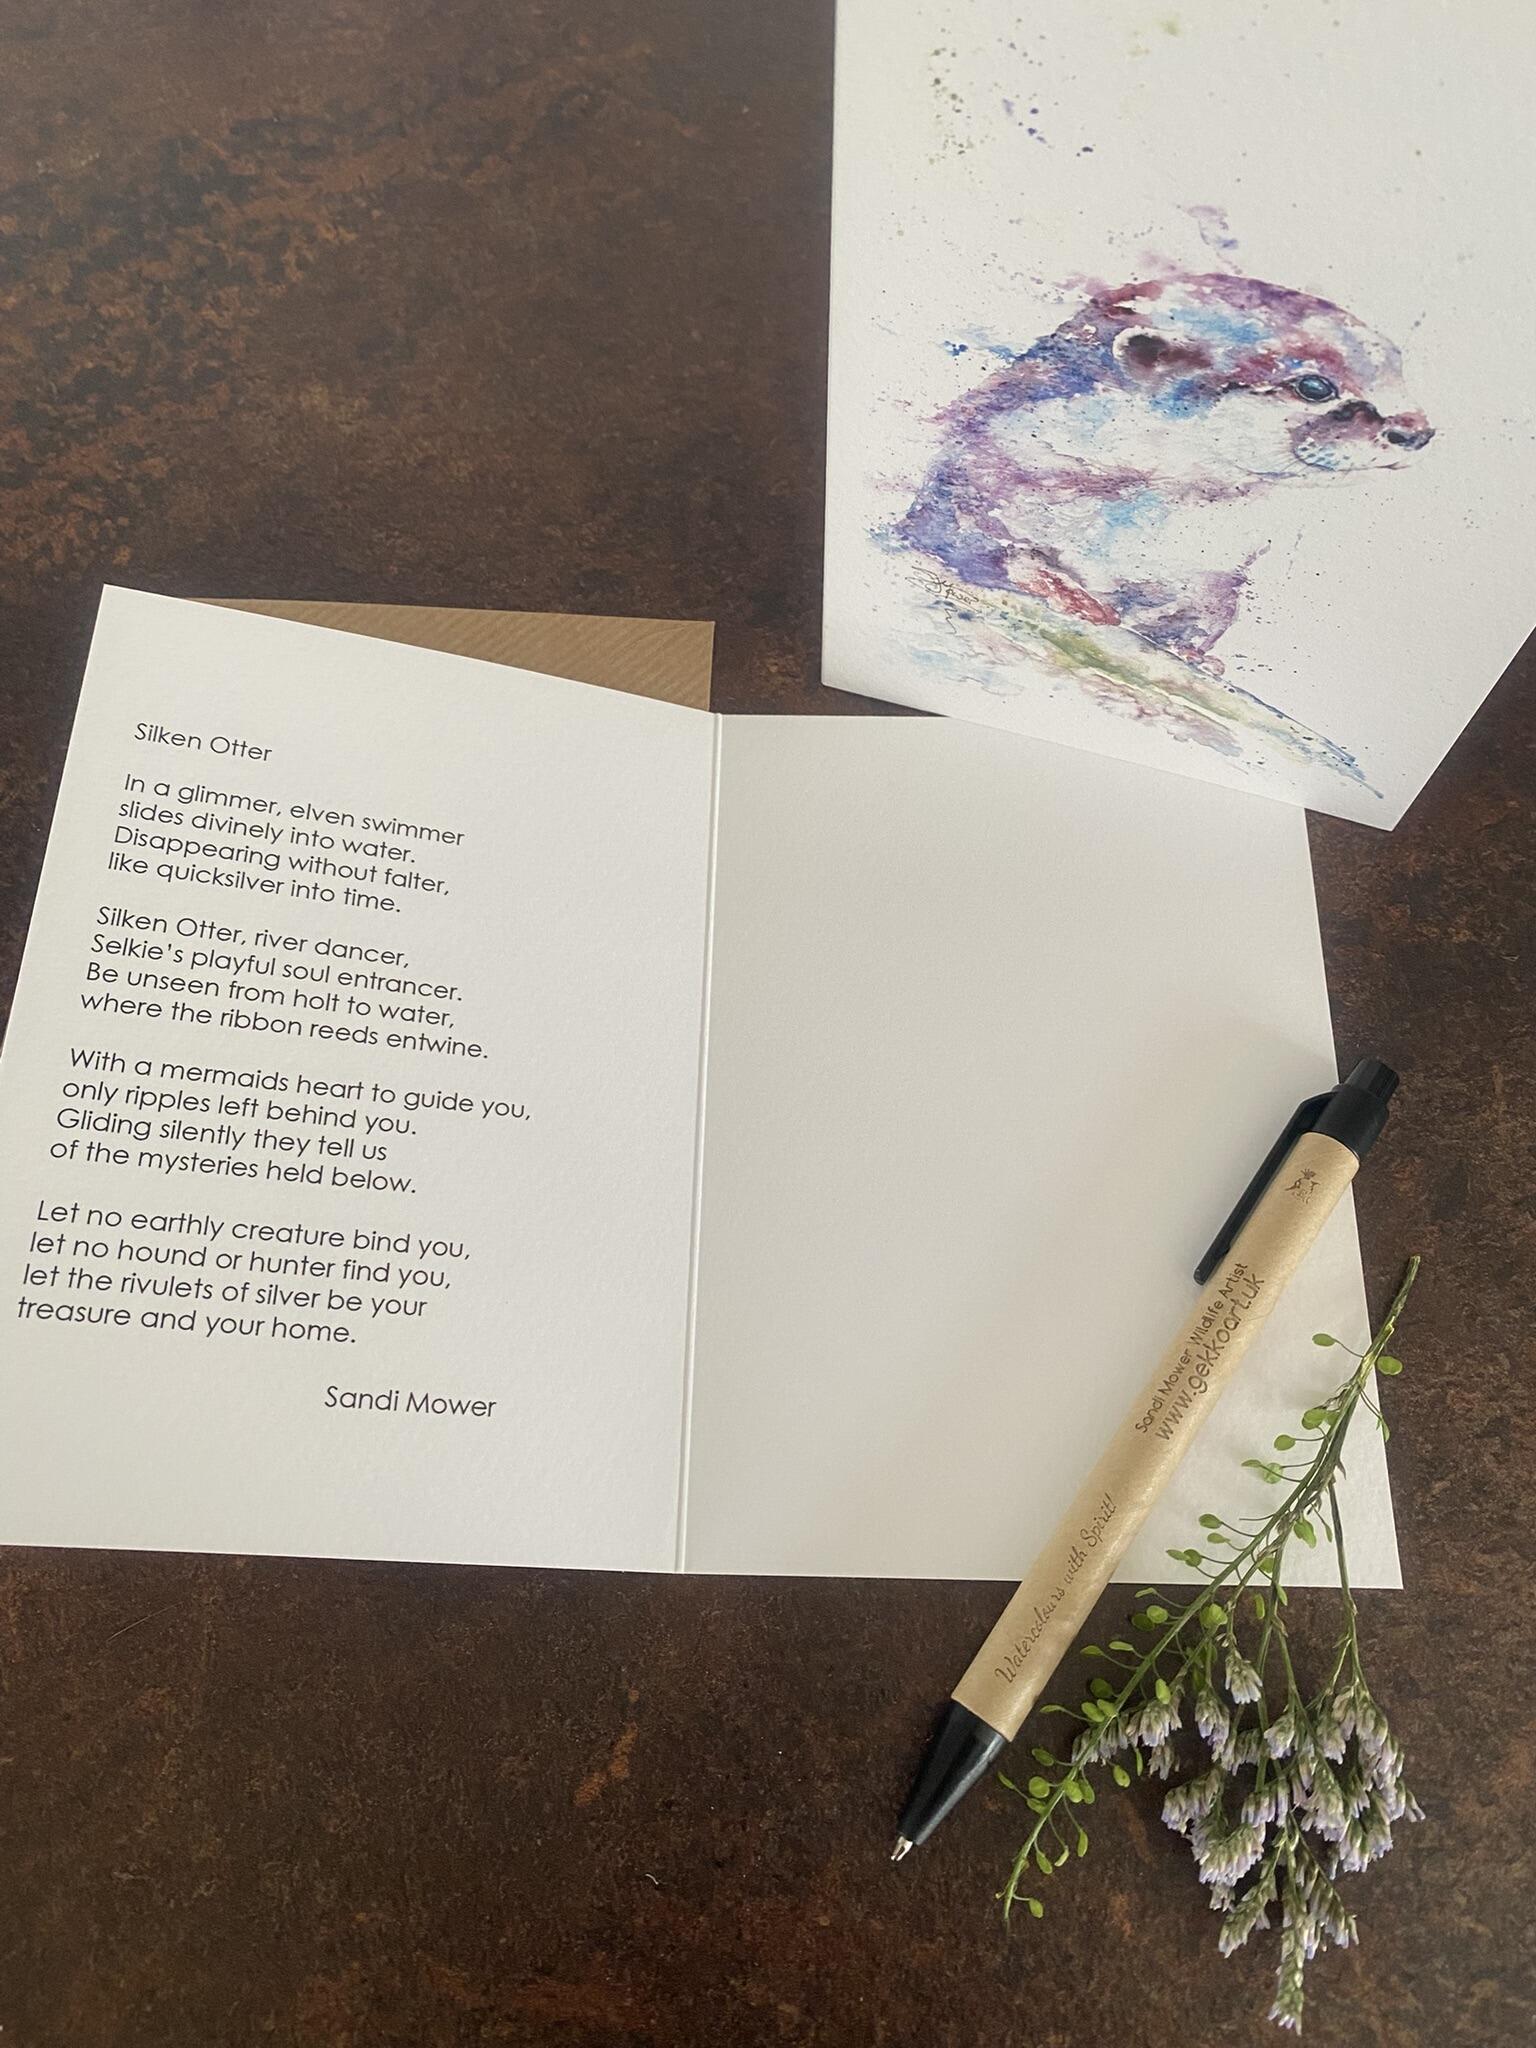 Silken Otter
In a glimmer, elven swimmer
slides divinely into water.
Disappearing without falter,
like quicksilver into time.
Silken Otter, river dancer,
Selkie's playful soul entrancer.
Be unseen from holt to water,
where the ribbon reeds entwine.
With a mermaids heart to guide you,
only ripples left behind you.
Gliding silently they tell us
of the mysteries held below.
Let no earthly creature bind you,
let no hound or hunter find you,
let the rivulets of silver be your
treasure and your home.
Sandi Mower
Mower
Sandi Mower Wildlife Artist
www.gekkoart.uk
Watercolours with Spirit!